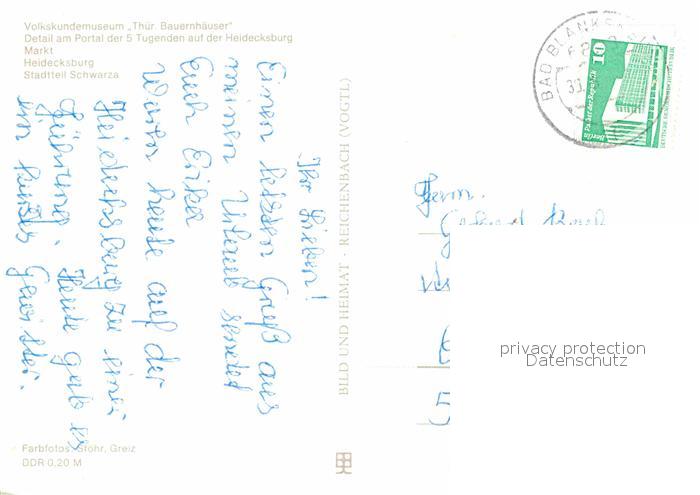 Volkskundemuseum „Thür. Bauernhäuser"
Detail am Portal der 5 Tugenden auf der Heidecksburg
Markt
Heidecksburg
Stadtteil Schwarza
Ihr Lieben!
Einen letzten Gruß aus
meinem Urlaub sendet
Euch Erika
Waren heute auf der
Heidecksburg zu einer
Führung. Heute gab es
ein kurzes Gewitter.
BILD UND HEIMAT · REICHENBACH (VOGTL)
Farbfotos: Stöhr, Greiz
DDR 0,20 M
BAD BLANKEN
10
Berlin Palast der Republik
Fam.
privacy protection
Datenschutz